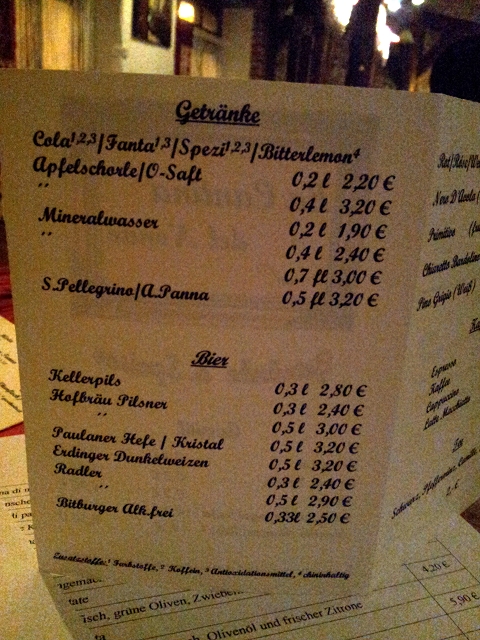 Getränke
Cola¹,²,³/Fanta¹,³/Spezi¹,²,³/Bitterlemon⁴
Apfelschorle/O-Saft 0,2 l 2,20 €
" 0,4 l 3,20 €
Mineralwasser 0,2 l 1,90 €
" 0,4 l 2,40 €
0,7 fl 3,00 €
S.Pellegrino/A.Panna 0,5 fl 3,20 €
Bier
Kellerpils 0,3 l 2,80 €
Hofbräu Pilsner 0,3 l 2,40 €
" 0,5 l 3,00 €
Paulaner Hefe / Kristal 0,5 l 3,20 €
Erdinger Dunkelweizen 0,5 l 3,20 €
Radler 0,3 l 2,40 €
" 0,5 l 2,90 €
Bitburger Alk.frei 0,33l 2,50 €
Zusatzstoffe:¹ Farbstoffe, ² Koffein, ³ Antioxidationsmittel, ⁴ chininhaltig
Rot/Rose/We
Nero D'Avola (
Primitivo
Chiaretto Bardolino
Pino Grigio (Weiß)
Espresso
Kaffee
Cappuccino
Latte Macchiato
Tee
Schwarz, Pfefferminz, Kamille
isch, grüne Oliven, Zwiebel
4,20 €
Olivenöl und frischer Zitrone
5,90 €